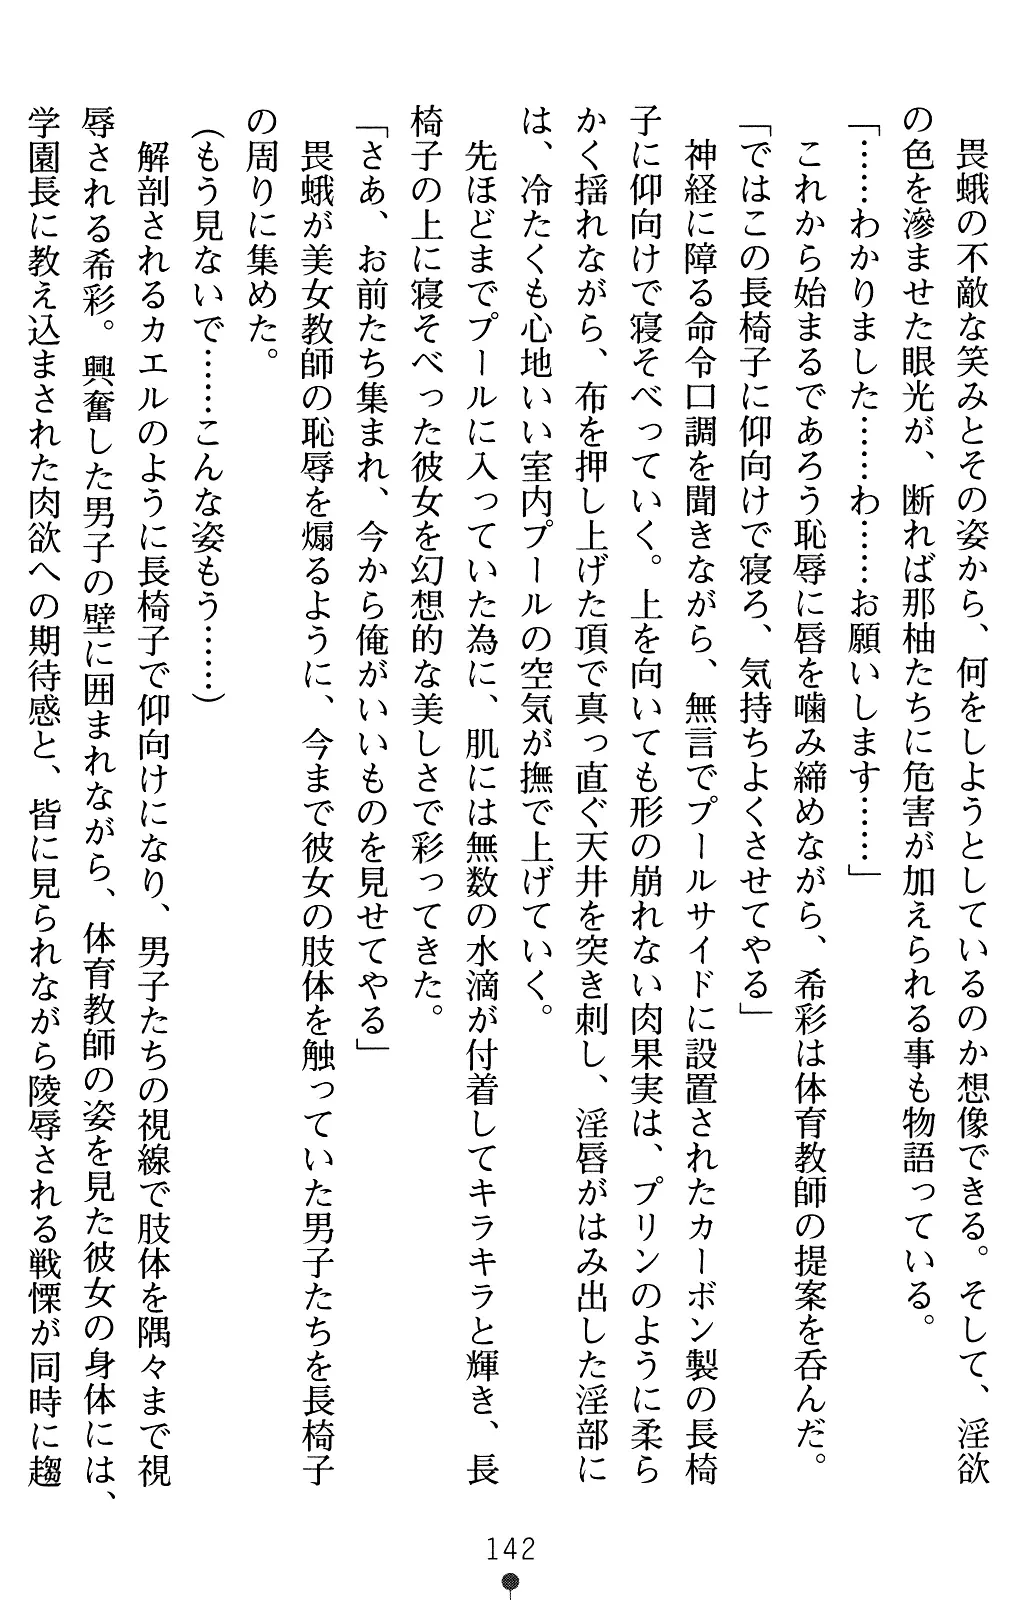 畏蛾の不敵な笑みとその姿から、何をしようとしているのか想像できる。そして、淫欲
の色を滲ませた眼光が、断れば那柚たちに危害が加えられる事も物語っている。
「……わかりました……わ……お願いします……」
これから始まるであろう恥辱に唇を噛み締めながら、希彩は体育教師の提案を呑んだ。
「ではこの長椅子に仰向けで寝ろ、気持ちよくさせてやる」
神経に障る命令口調を聞きながら、無言でプールサイドに設置されたカーボン製の長椅
子に仰向けで寝そべっていく。上を向いても形の崩れない肉果実は、プリンのように柔ら
かく揺れながら、布を押し上げた頂で真っ直ぐ天井を突き刺し、淫唇がはみ出した淫部に
は、冷たくも心地いい室内プールの空気が撫で上げていく。
先ほどまでプールに入っていた為に、肌には無数の水滴が付着してキラキラと輝き、長
椅子の上に寝そべった彼女を幻想的な美しさで彩ってきた。
「さあ、お前たち集まれ、今から俺がいいものを見せてやる」
畏蛾が美女教師の恥辱を煽るように、今まで彼女の肢体を触っていた男子たちを長椅子
の周りに集めた。
(もう見ないで……こんな姿もう……)
解剖されるカエルのように長椅子で仰向けになり、男子たちの視線で肢体を隅々まで視
辱される希彩。興奮した男子の壁に囲まれながら、体育教師の姿を見た彼女の身体には、
学園長に教え込まされた肉欲への期待感と、皆に見られながら陵辱される戦慄が同時に趨
142